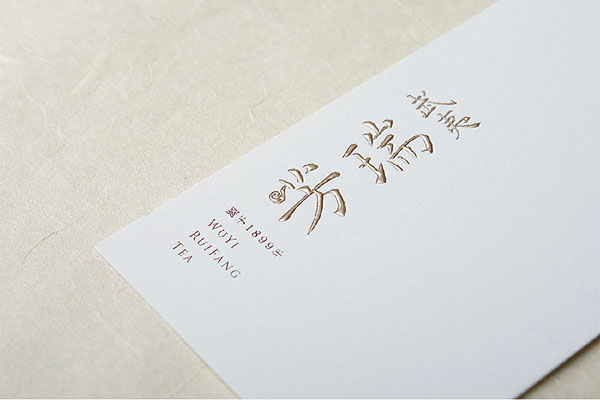 武夷
瑞芳
于1899年
WUYI
RUIFANG
TEA